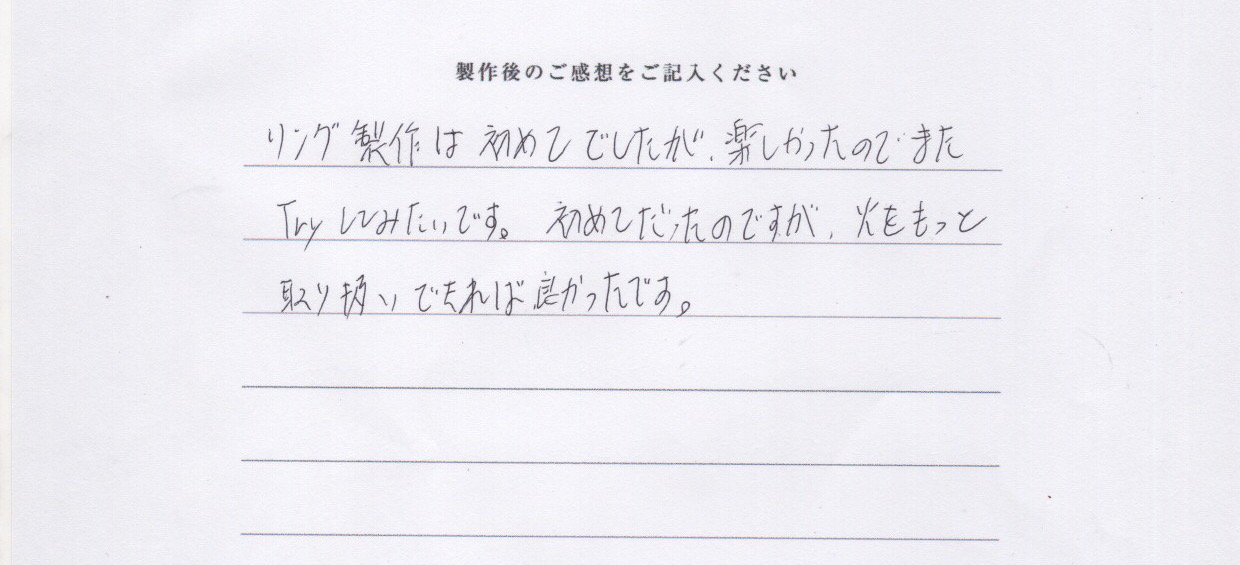 製作後のご感想をご記入ください
リング製作は初めてでしたが、楽しかったのでまた
Tryしてみたいです。初めてだったのですが、火をもっと
取り扱いできれば良かったです。